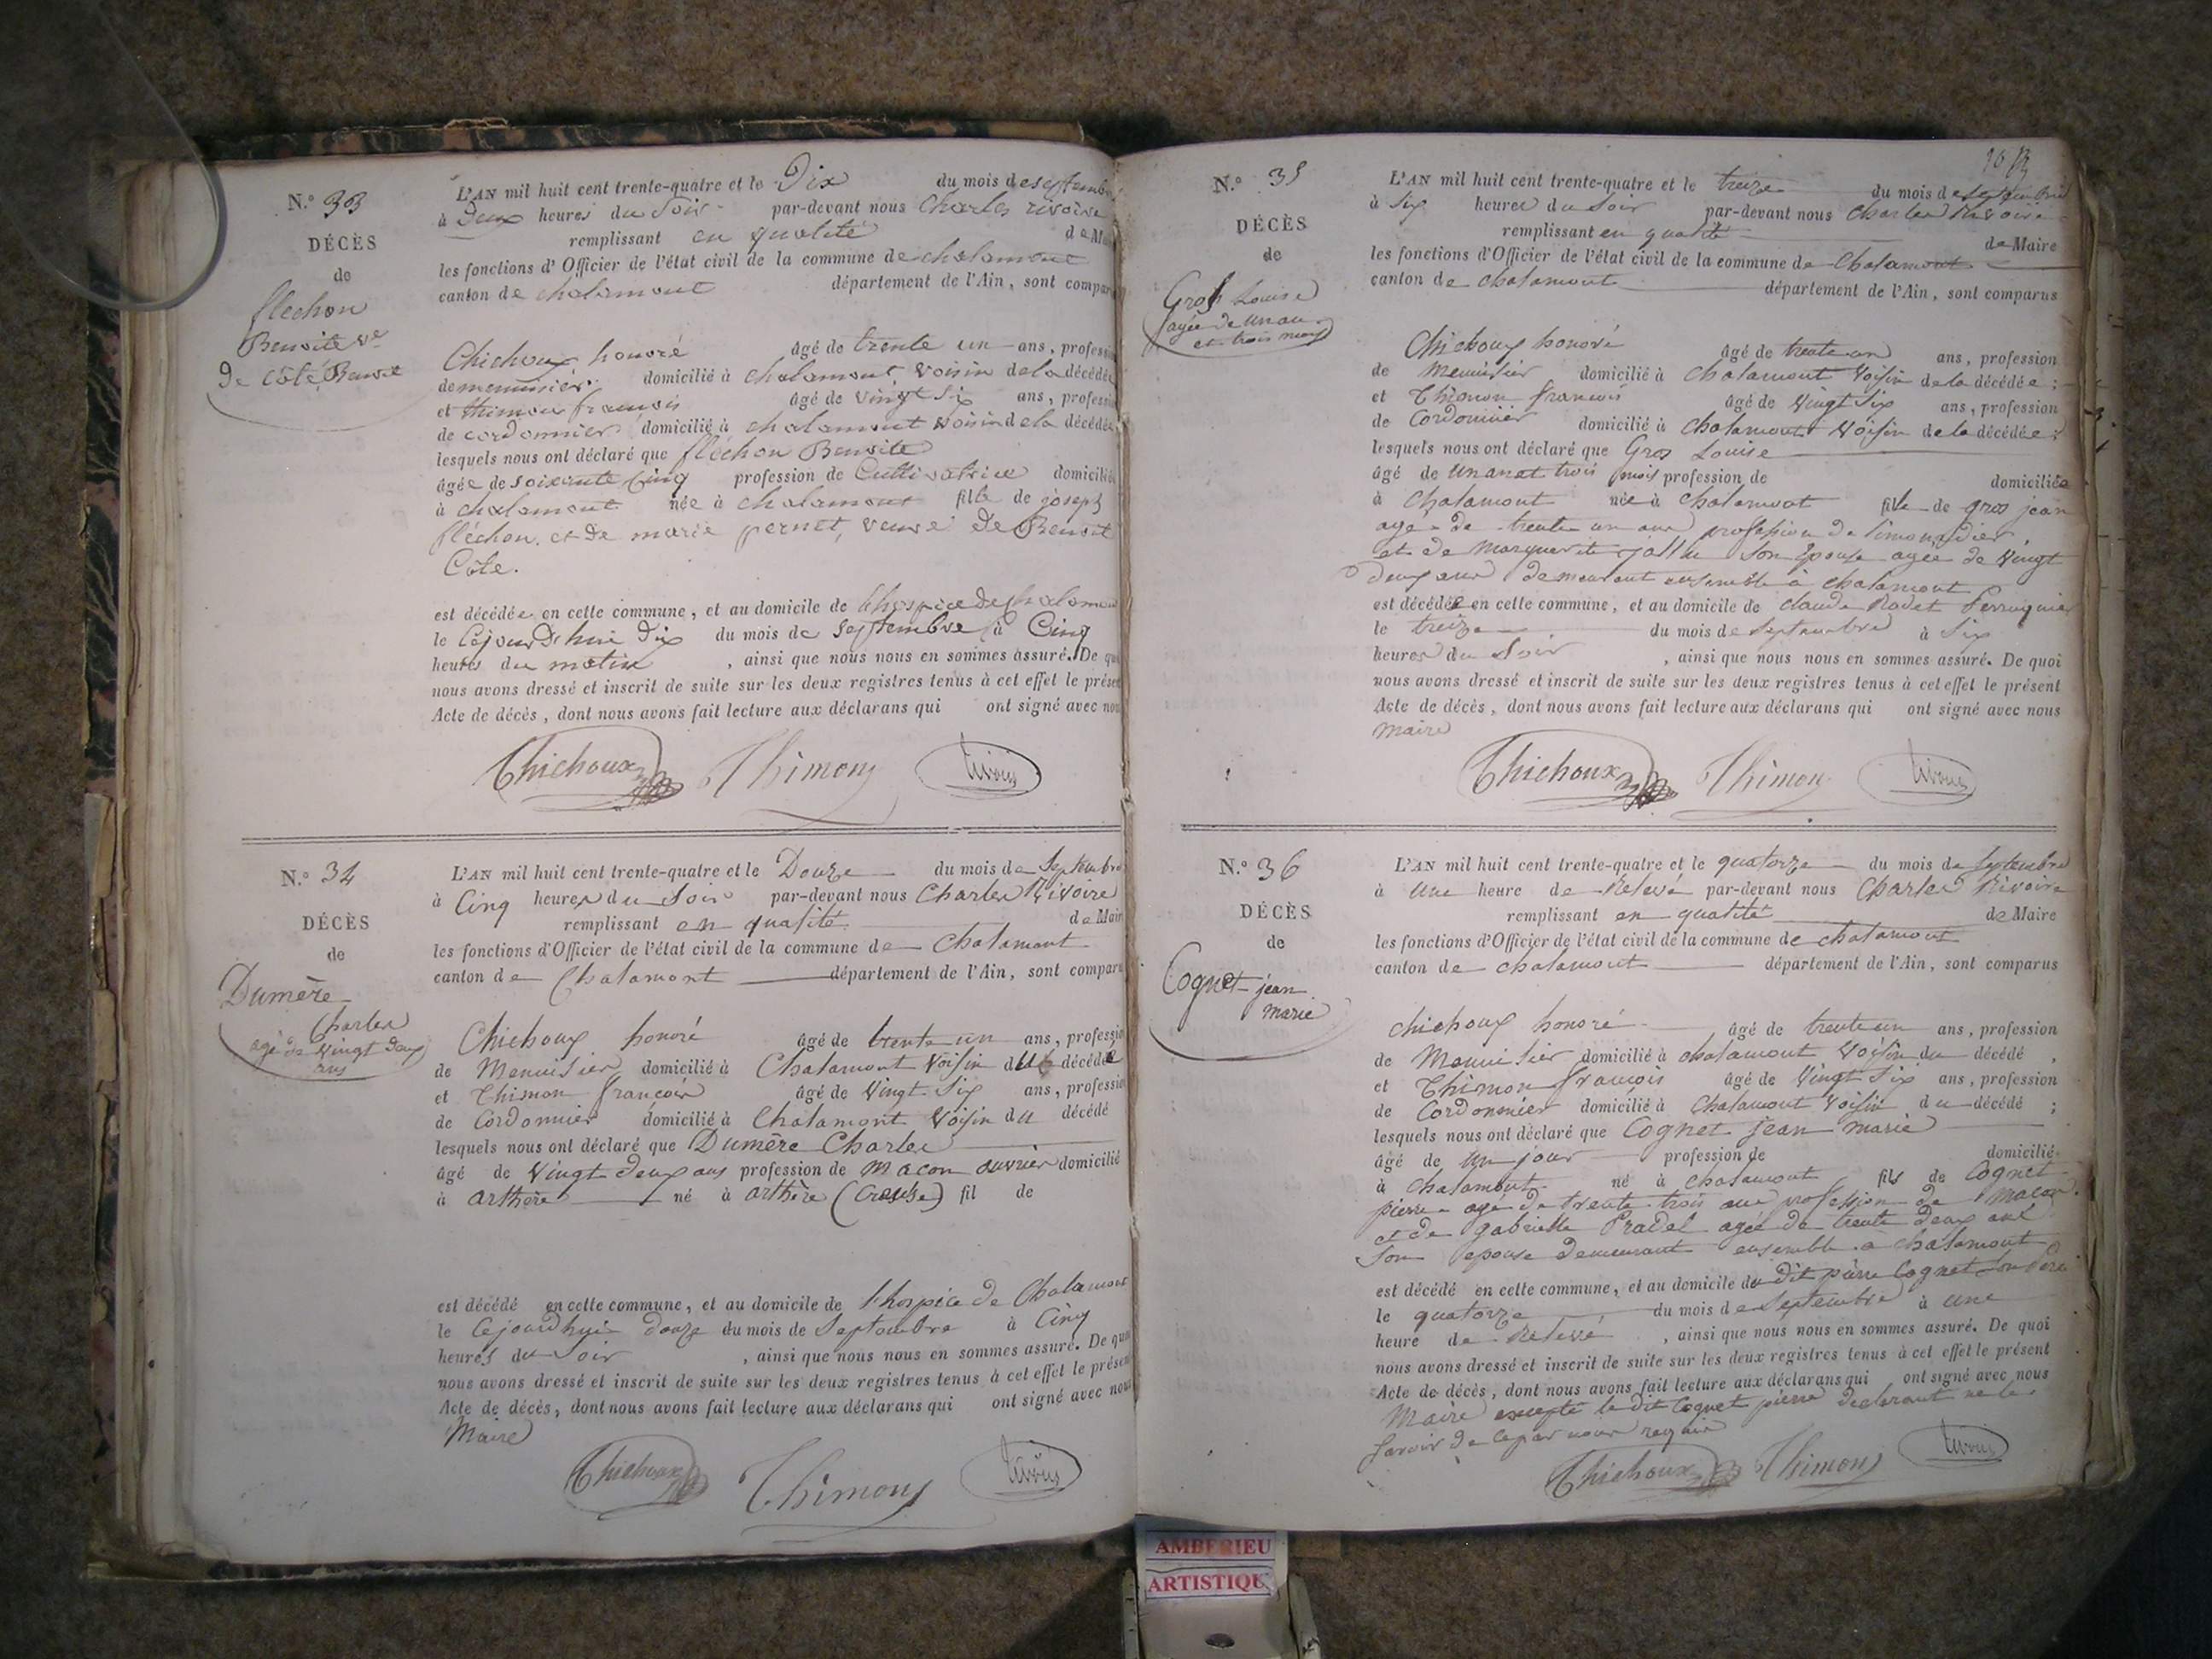 N.° 33
DÉCÈS
de
fléchon
Benoite Ve
de Côte Benoit
L'AN mil huit cent trente-quatre et le Dix du mois de septemb
à Deux heures du Soir par-devant nous Charles rivoire
remplissant en qualité de M
les fonctions d'Officier de l'état civil de la commune de chalamont
canton de chalamont département de l'Ain, sont compar
Chichoux honoré âgé de trente un ans, profess
de menuisier domicilié à chalamont voisin de la décédée
et thimon francois âgé de vingt six ans, profess
de cordonnier domicilié à chalamont voisin de la décédée
lesquels nous ont déclaré que fléchon Benoite
âgée de soixante Cinq profession de Cultivatrice domicilié
à chalamont née à chalamont fille de joseph
fléchon et de marie pernet, veuve de Benoit
Côte.
est décédée en cette commune, et au domicile de lhospice de chalamon
le Cejourd'hui Dix du mois de septembre à Cinq
heures du matin , ainsi que nous nous en sommes assuré. De qu
nous avons dressé et inscrit de suite sur les deux registres tenus à cet effet le prése
Acte de décès, dont nous avons fait lecture aux déclarans qui ont signé avec nou
Chichoux Thimon rivoire
N.° 34
DÉCÈS
de
Dumère
Charles
agé de Vingt deux
ans
L'AN mil huit cent trente-quatre et le Douze du mois de Septembre
à Cinq heures du Soir par-devant nous Charles Rivoire
remplissant en qualité de Mair
les fonctions d'Officier de l'état civil de la commune de Chalamont
canton de Chalamont département de l'Ain, sont comparu
Chichoux honoré âgé de trente un ans, professio
de Menuisier domicilié à Chalamont Voisin du décédé
et Thimon françois âgé de Vingt Six ans, professio
de Cordonnier domicilié à Chalamont Voisin du décédé
lesquels nous ont déclaré que Dumère Charles
âgé de Vingt deux ans profession de Macon ouvrier domicilié
à arthère né à arthère (Creuse) fil de
est décédé en cette commune, et au domicile de l'hospice de Chalamont
le Cejourdhui douze du mois de Septembre à Cinq
heures du Soir , ainsi que nous nous en sommes assuré. De quo
nous avons dressé et inscrit de suite sur les deux registres tenus à cet effet le présen
Acte de décès, dont nous avons fait lecture aux déclarans qui ont signé avec nous
Maire
Chichoux Thimon rivoire
N.° 35
DÉCÈS
de
Gros Louise
agée de un an
et trois mois
L'AN mil huit cent trente-quatre et le treize du mois de septembre
à Six heures du Soir par-devant nous Charles Rivoire
remplissant en qualité de Maire
les fonctions d'Officier de l'état civil de la commune de Chalamont
canton de chalamont département de l'Ain, sont comparus
Chichoux honoré âgé de trente un ans, profession
de Menuisier domicilié à Chalamont Voisin de la décédée ;
et Thimon francois âgé de Vingt Six ans, profession
de Cordonnier domicilié à Chalamont Voisin de la décédée ;
lesquels nous ont déclaré que Gros Louise
âgé de un an et trois mois profession de domiciliée
à Chalamont née à Chalamont fille de gros jean
agé de trente un ans profession de limonadier
et de Marguerite son Epouse agée de Vingt
Deux ans demeurant ensemble à chalamont
est décédée en cette commune, et au domicile de claude Rodet Perruquier
le treize du mois de Septembre à Six
heures du Soir , ainsi que nous nous en sommes assuré. De quoi
nous avons dressé et inscrit de suite sur les deux registres tenus à cet effet le présent
Acte de décès, dont nous avons fait lecture aux déclarans qui ont signé avec nous
Maire
Chichoux Thimon rivoire
N.° 36
DÉCÈS
de
Cognet jean
Marie
L'AN mil huit cent trente-quatre et le quatorze du mois de Septembre
à Une heure de Relevé par-devant nous Charles Rivoire
remplissant en qualité de Maire
les fonctions d'Officier de l'état civil de la commune de chalamont
canton de chalamont département de l'Ain, sont comparus
Chichoux honoré âgé de trente un ans, profession
de Menuisier domicilié à chalamont Voisin du décédé ,
et Thimon françois âgé de Vingt Six ans, profession
de Cordonnier domicilié à Chalamont Voisin du décédé ;
lesquels nous ont déclaré que Cognet jean marie
âgé de un jour profession de domicilié
à Chalamont né à chalamont fils de Cognet
pierre agé de trente trois ans profession de Macon
et de gabrielle Pradel agée de trente deux ans
Son epouse demeurant ensemble a chalamont
est décédé en cette commune, et au domicile du dit pierre Cognet Son Pere
le quatorze du mois de Septembre à une
heure de Relevé , ainsi que nous nous en sommes assuré. De quoi
nous avons dressé et inscrit de suite sur les deux registres tenus à cet effet le présent
Acte de décès, dont nous avons fait lecture aux déclarans qui ont signé avec nous
Maire excepté le dit Cognet pierre declarant ne le
Savoir de ce par nous requis
Chichoux Thimon rivoire
AMBERIEU
ARTISTIQU